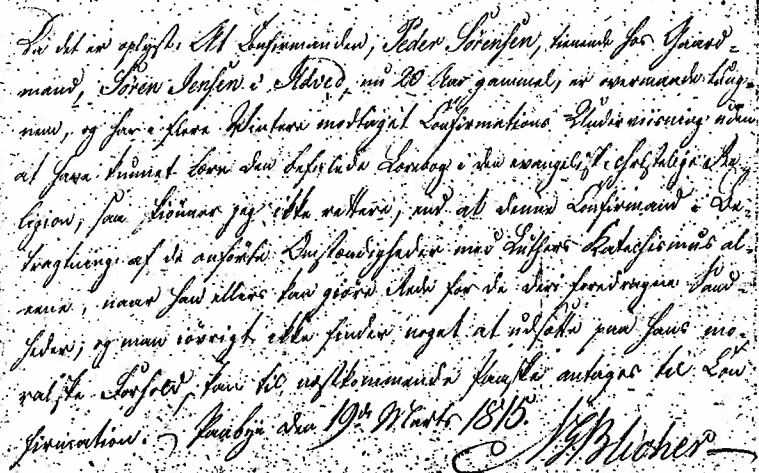 Da det er oplyst: At Confirmanden, Peder Sörensen, tienende hos Gaard-
mand, Sören Jensen i AdvED, nu 20 Aar gammel, er overmaade tung-
nem, og har i flere Vintere modtaget Confirmations Underviisning uden
at have kunnet lære den befalede Lærebog i den evangelisk christelige Re-
ligion; saa skiönner jeg ikke rettere, end at denne Confirmand i Be-
tragtning af de anförte Omstændigheder med Luthers Katechismus al-
eene, naar han ellers kan giöre Rede for de deri foredragne Sand-
heder; og man iövrigt ikke finder noget at udsætte paa hans mo-
ralske Forhold, kan til næstkommende Paaske antages til Con
firmation. den 19de Marts 1815. Blicher